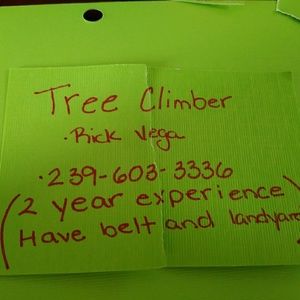 Tree Climber
· Rick Vega
· 239-603-3336
(2 year experience)
Have belt and landyard